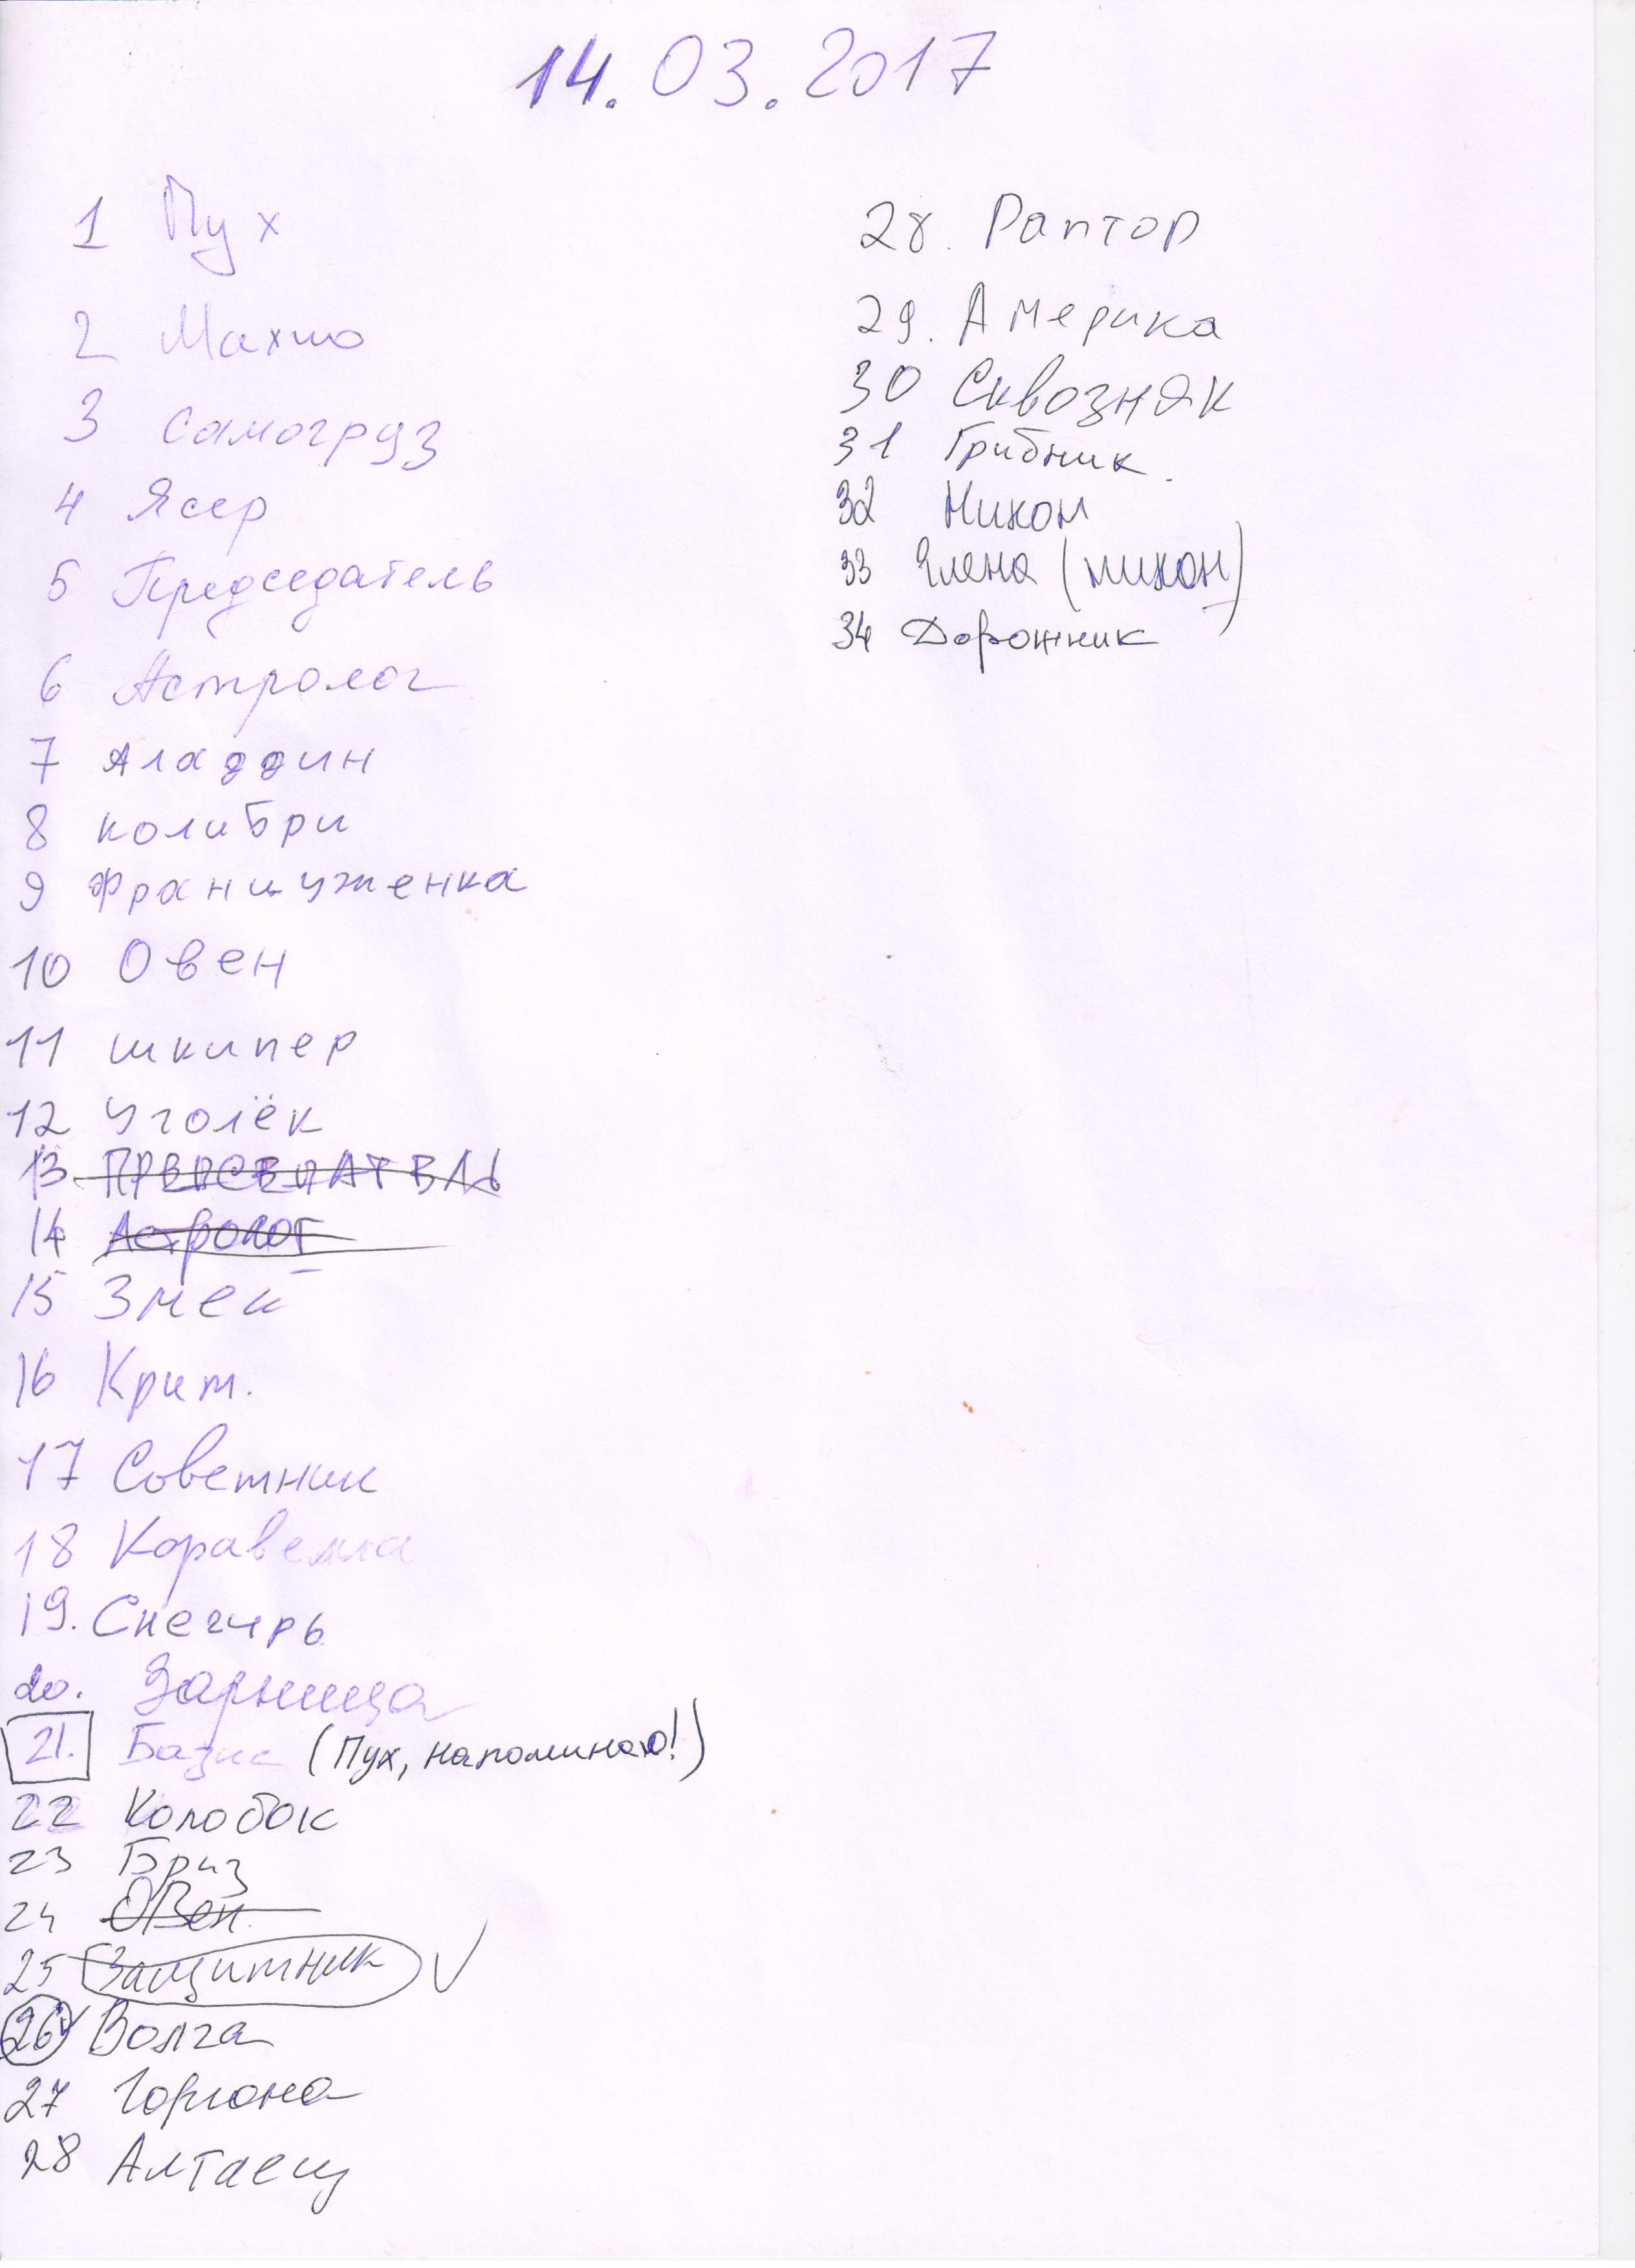 14.03.2017
1 Пух
2 Махно
3 Самогруз
4 Ясер
5 Председатель
6 Астролог
7 Аладдин
8 колибри
9 Француженка
10 Овен
11 шкипер
12 Уголёк
13. ПРЕДСЕДАТЕЛЬ
14 Астролог
15 Змей
16 Крит.
17 Советник
18 Каравелла
19. Снегирь
20. Зарница
21. Базис (Пух, напоминаю!)
22 Колобок
23 Бриз
24 Овен
25 Защитник
26 Волга
27 Горгона
28 Алтаец
28. Раптор
29. Америка
30 Сквозняк
31 Грибник
32 Никон
33 Елена (никон)
34 Дорожник